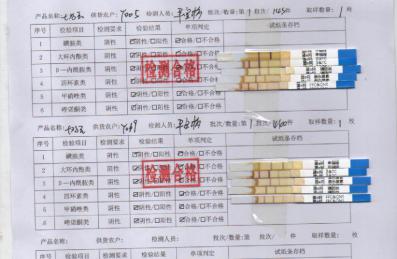 产品名称: 供货农户: Y005 检测人员: 批次/数量:第 1 批次/ 1450 取样数量: 1 枚
序号 检验项目 检测要求 检验结果 单项判定 试纸条存档
1 磺胺类 阴性 ☑阴性/□阳性 ☑合格/□不合格
2 大环内酯类 阴性 ☑合格/□不合格
3 β—内酰胺类 阴性 ☑合格/□不合格
4 四环素类 阴性 ☑合格/□不合格
5 甲硝唑类 阴性 ☑阴性/□阳性 ☑合格/□不合格
6 喹诺酮类 阴性 ☑阴性/□阳性 ☑合格/□不合格
检测合格
产品名称: 供货农户: 检测人员: 批次/数量:第 1 批次/ 取样数量: 1 枚
序号 检验项目 检测要求 检验结果 单项判定 试纸条存档
1 磺胺类 阴性 ☑阴性/□阳性 ☑合格/□不合格
2 大环内酯类 阴性 ☑合格/□不合格
3 β—内酰胺类 阴性 ☑合格/□不合格
4 四环素类 阴性 ☑合格/□不合格
5 甲硝唑类 阴性 ☑阴性/□阳性 ☑合格/□不合格
6 喹诺酮类 阴性 ☑阴性/□阳性 ☑合格/□不合格
检测合格
产品名称: 供货农户: 检测人员: 批次/数量:第 批次/ 件 取样数量: 枚
序号 检验项目 检测要求 检验结果 单项判定 试纸条存档